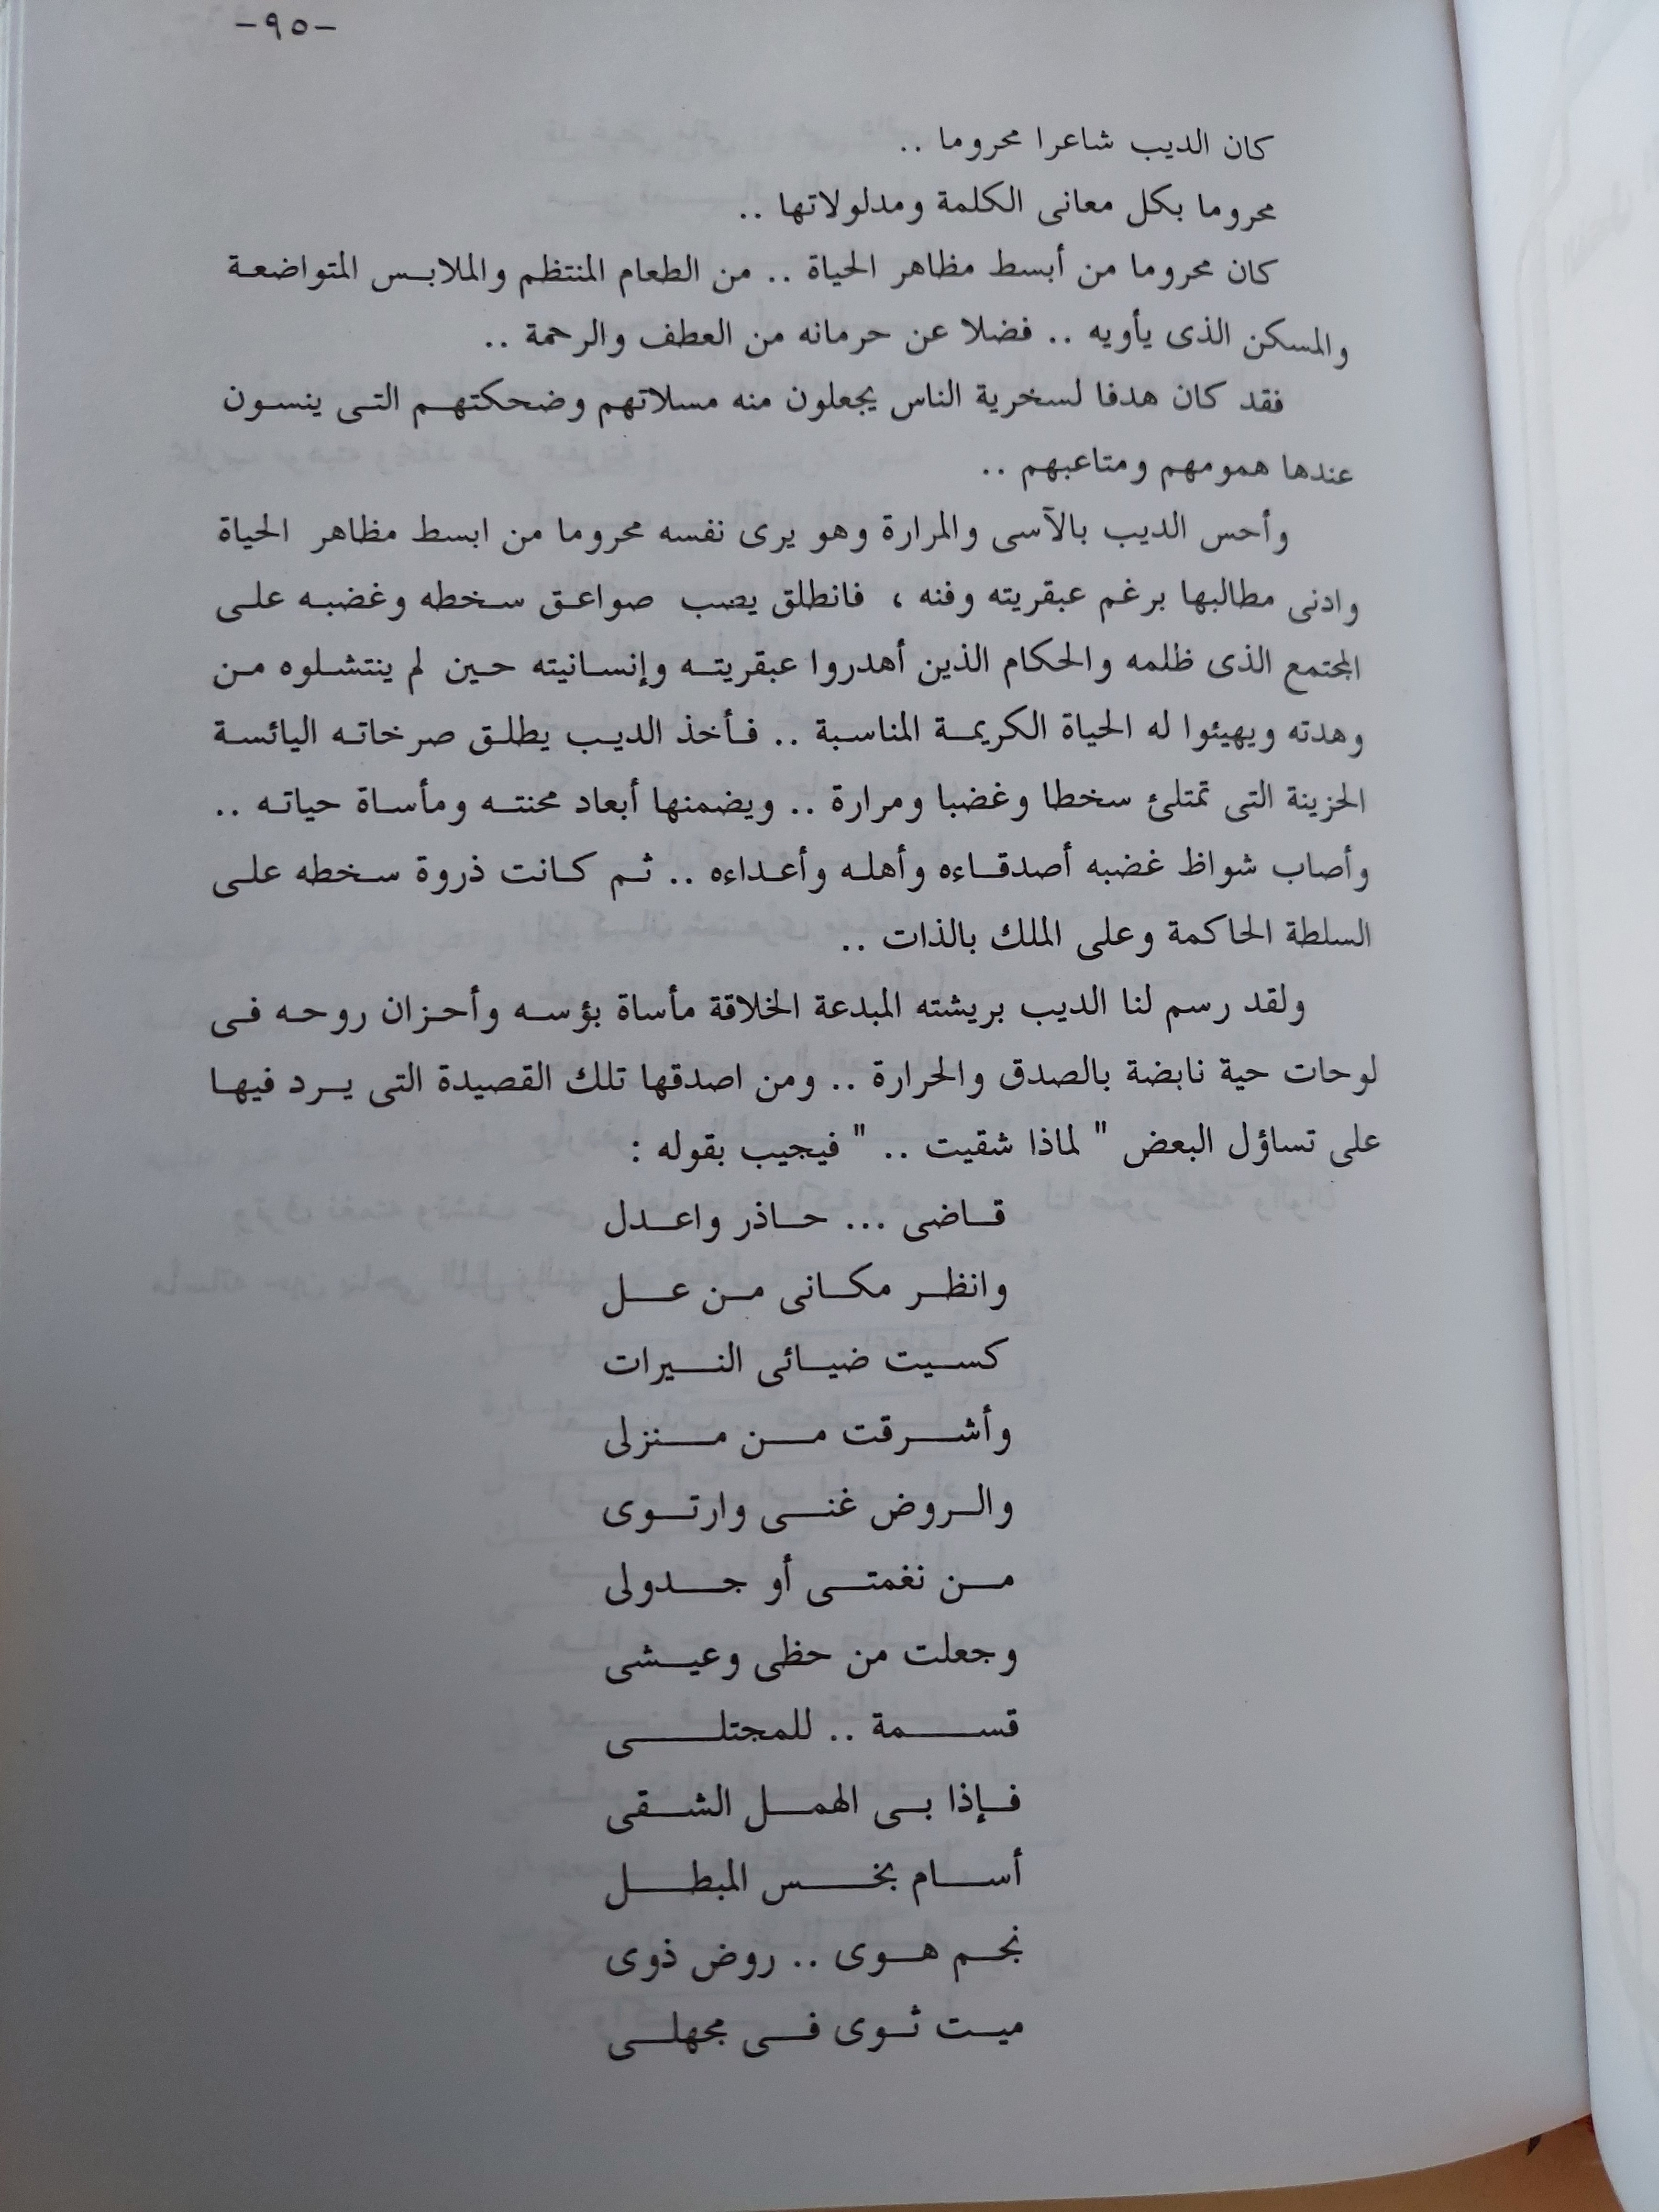 -٩٥-
كان الديب شاعرا محروما ..
محروما بكل معانى الكلمة ومدلولاتها ..
كان محروما من أبسط مظاهر الحياة .. من الطعام المنتظم والملابس المتواضعة
والمسكن الذى يأويه .. فضلا عن حرمانه من العطف والرحمة ..
فقد كان هدفا لسخرية الناس يجعلون منه مسلاتهم وضحكتهم التى ينسون
عندها همومهم ومتاعبهم ..
وأحس الديب بالآسى والمرارة وهو يرى نفسه محروما من ابسط مظاهر الحياة
وادنى مطالبها برغم عبقريته وفنه ، فانطلق يصب صواعق سخطه وغضبه على
المجتمع الذى ظلمه والحكام الذين أهدروا عبقريته وإنسانيته حين لم ينتشلوه من
وهدته ويهيئوا له الحياة الكريمة المناسبة .. فأخذ الديب يطلق صرخاته اليائسة
الحزينة التى تمتلئ سخطا وغضبا ومرارة .. ويضمنها أبعاد محنته ومأساة حياته ..
وأصاب شواظ غضبه أصدقاءه وأهله وأعداءه .. ثم كانت ذروة سخطه على
السلطة الحاكمة وعلى الملك بالذات ..
ولقد رسم لنا الديب بريشته المبدعة الخلاقة مأساة بؤسه وأحزان روحه فى
لوحات حية نابضة بالصدق والحرارة .. ومن اصدقها تلك القصيدة التى يرد فيها
على تساؤل البعض " لماذا شقيت .. " فيجيب بقوله :
قاضى ... حاذر واعدل
وانظر مكانى من عل
كسيت ضيائى النيرات
وأشرقت من منزلى
والروض غنى وارتوى
من نغمتى أو جدولى
وجعلت من حظى وعيشى
قسمة .. للمجتلى
فإذا بى الهمل الشقى
أسام بخس المبطل
نجم هوى .. روض ذوى
ميت ثوى فى مجهلى